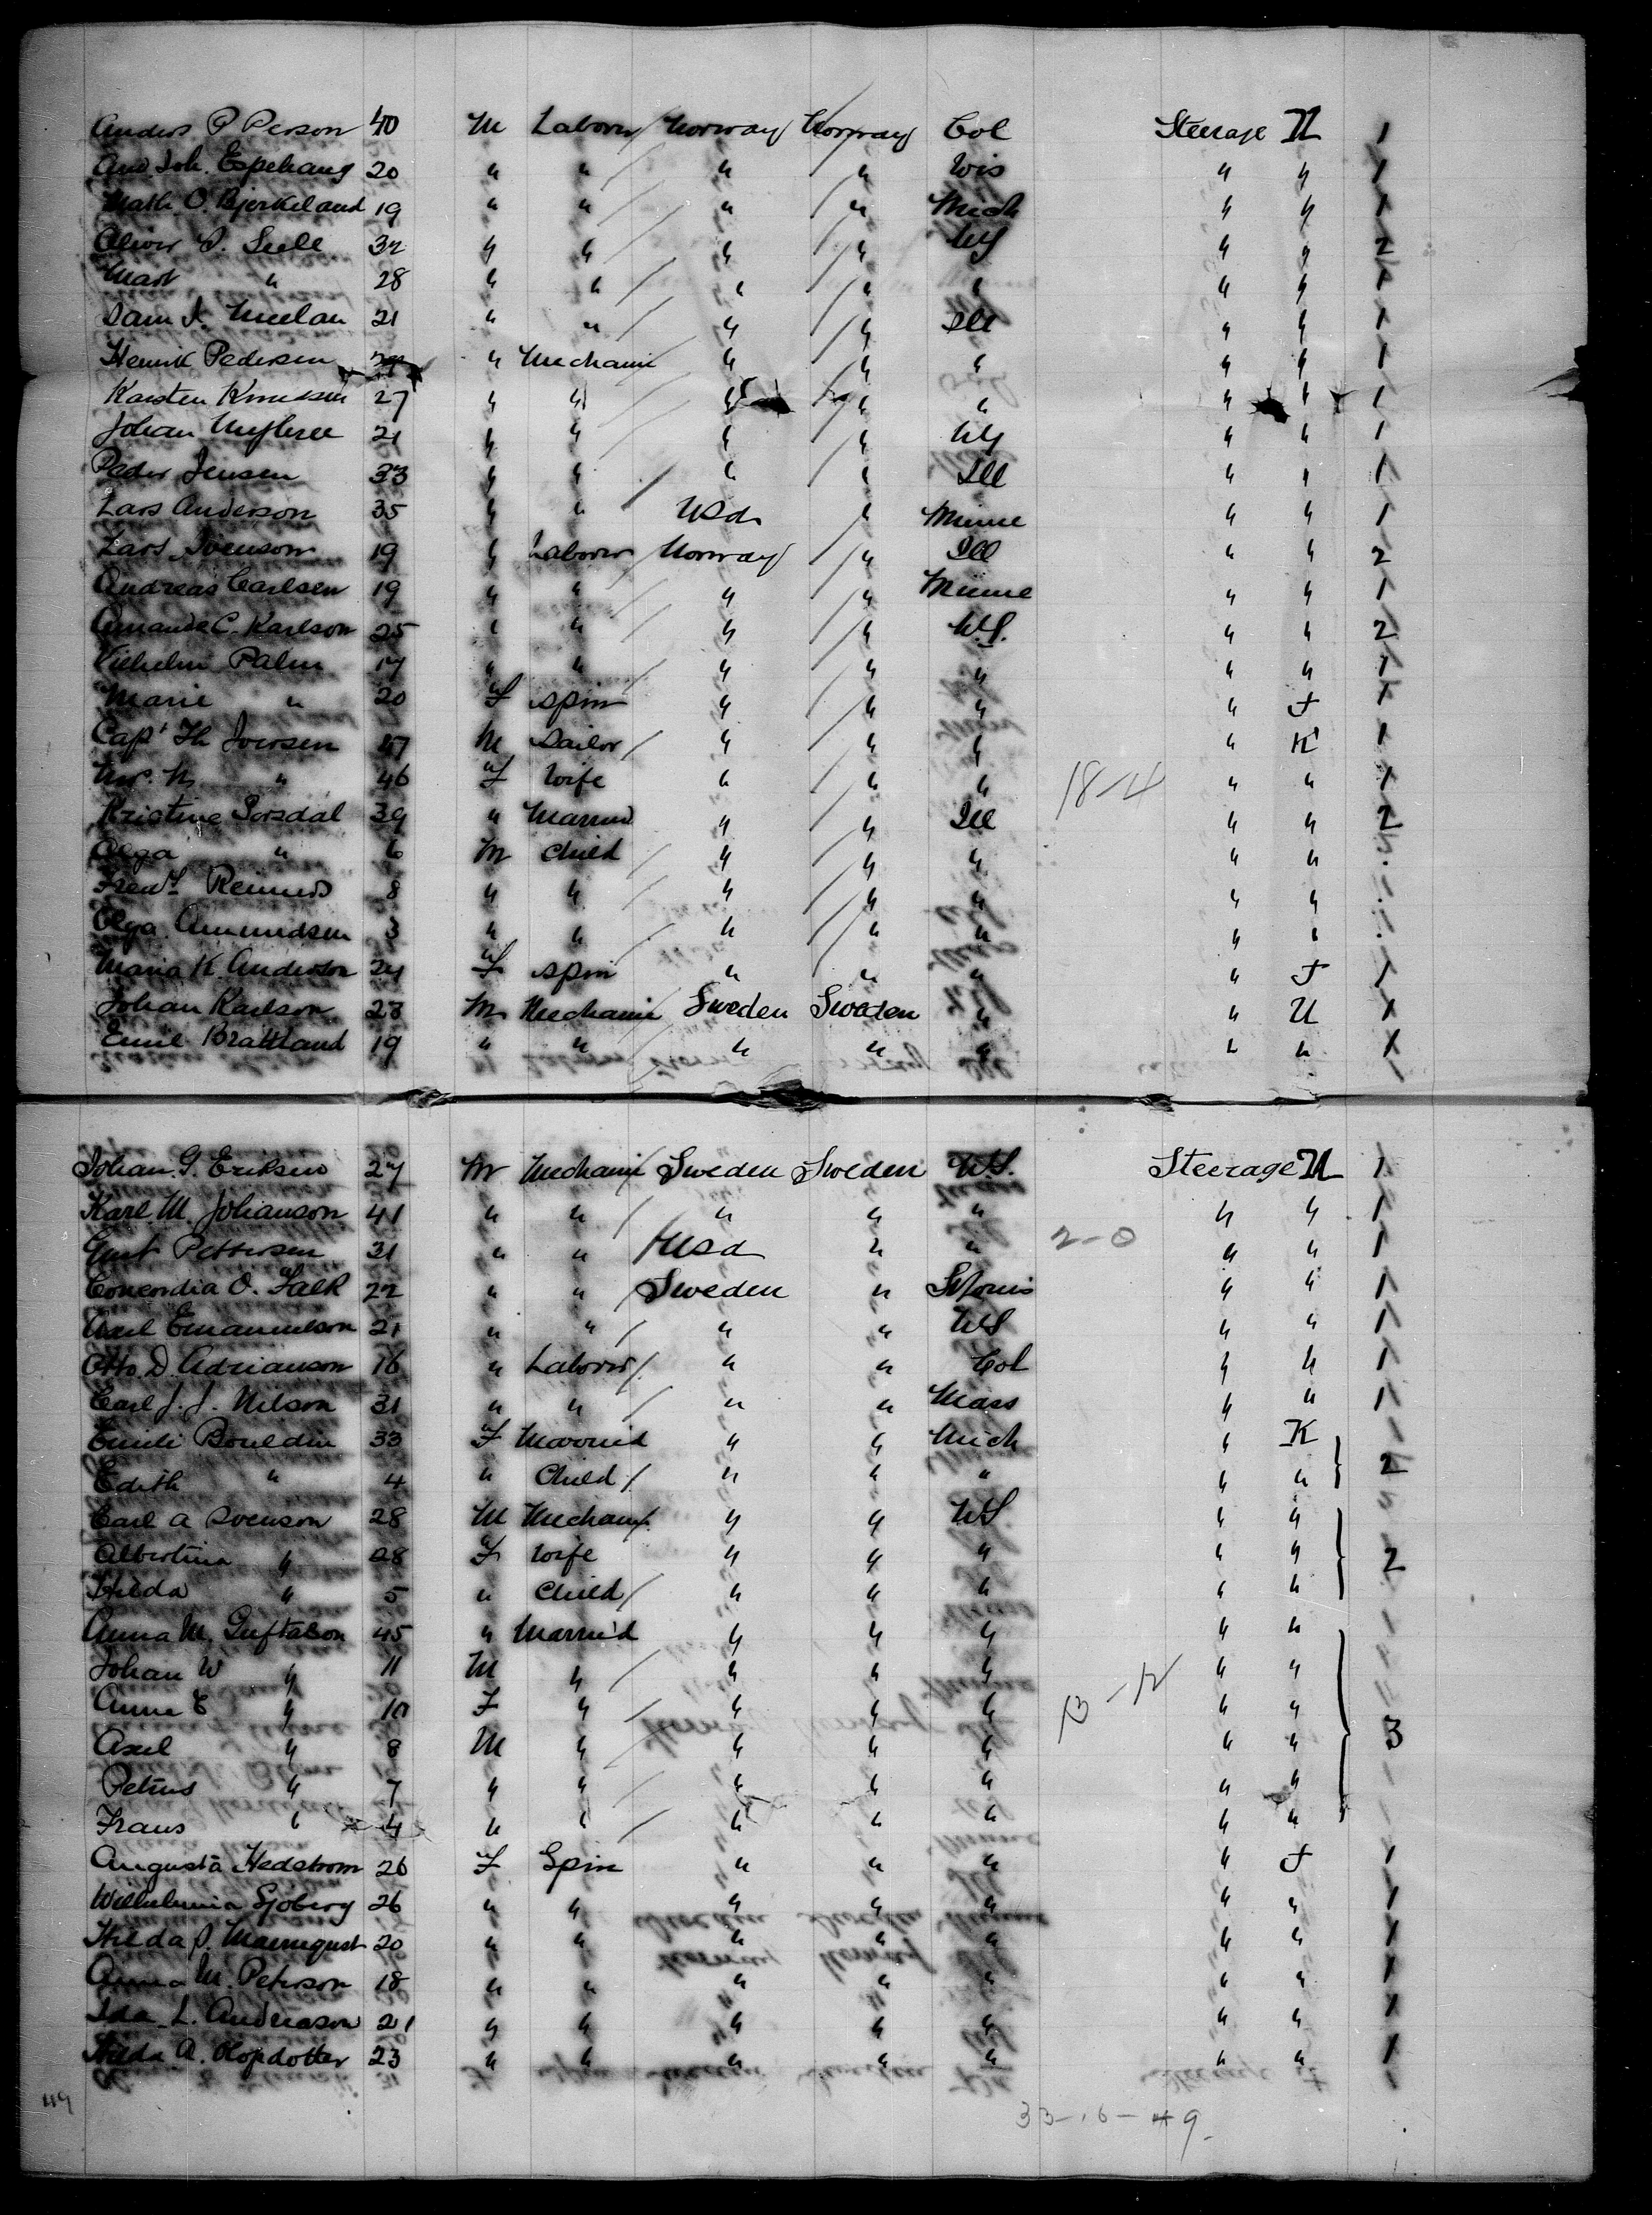 Anders P Person 40 M Laborer Norway Norway Col Steerage U 1
And Joh. Espehaug 20 " " " " Wis " " 1
Math. O. Bjerkeland 19 " " " " Mich " " 1
Oliver S. Seell 32 " " " " NY " " 2
Mart " 28 " " " " " " " 1
Sam J. Meelan 21 " " " " Ill " " 1
Henrik Pedersen " Mechanic " " " " " 1
Karsten Knudsen 27 " " " " " " " 1
Johan 21 " " " " NY " " 1
Peder Jensen 33 " " " " Ill " " 1
Lars Anderson 35 " " USA " Minne " " 1
Lars Svenson 19 " Laborer Norway " Ill " " 2
Andreas Carlsen 19 " " " " Minne " " 1
Amanda C. Karlson 25 " " " " N.Y. " " 2
Vilhelm Palm 17 " " " " " " " 1
Marie " 20 F Spin " " " " F 1
Capt Th Iversen 47 M Sailor " " " " K 1
Mrs. M " 46 F Wife " " " 18-4 " " 1
Kristine Sorsdal 39 " Married " " Ill " " 2
Olga " 6 M Child " " " " "
Fredk Reimers 8 " " " " " " "
Olga Amundsen 3 " " " " " " "
Maria K. Anderson 24 F Spin " " " " F 1
Johan Karlson 23 M Mechanic Sweden Sweden " " U 1
Emil Brattland 19 " " " " " " " 1
Johan G. Eriksen 27 M Mechanic Sweden Sweden N.Y. Steerage U 1
Karl M. Johanson 41 " " " " " " " 1
Pettersen 31 " " USA " " 2-0 " " 1
Concordia O. Falk 22 " " Sweden " St Louis " " 1
Axel Emanuelson 21 " " " " NY " " 1
Otto D. Adrianson 16 " Laborer " " Col " " 1
Carl J. J. Nilson 31 " " " " Mass " " 1
Emili Bouldin 33 F Married " " Mich " K
Edith " 4 " Child " " " " " 2
Carl A Svenson 28 M Mechanic " " NY " "
Albertina " 28 F Wife " " " " " 2
Hilda " 5 " Child " " " " "
Anna M. Guftafson 45 " Married " " " " "
Johan W " 11 M " " " " " "
Anna E " 10 F " " " " 13-12 " "
Axel " 8 M " " " " " " 3
Petrus " 7 " " " " " " "
Frans " 4 " " " " " " "
Augusta Hedstrom 26 F Spin " " " " F 1
Wilhelmina Sjoberg 26 " " " " " " " 1
Hilda P. Mannqust 20 " " " " " " " 1
Anna M. Peterson 18 " " " " " " " 1
Ida L. Andreason 21 " " " " " " " 1
Hilda A. Olofsdotter 23 " " " " " " " 1
119
33-16-49